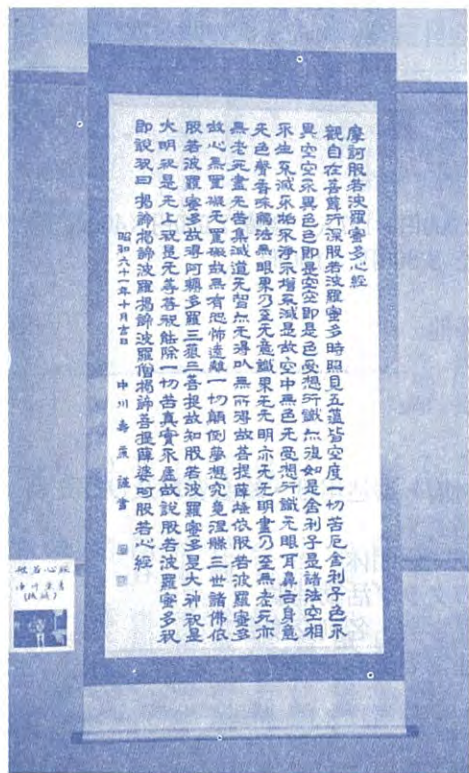 摩訶般若波羅蜜多心經
觀自在菩薩行深般若波羅蜜多時照見五蘊皆空度一切苦厄舍利子色不
異空空不異色色即是空空即是色受想行識亦復如是舍利子是諸法空相
不生不滅不垢不淨不增不減是故空中無色无受想行識无眼耳鼻舌身意
无色聲香味觸法無眼界乃至无意識界无无明亦无无明盡乃至無老死亦
無老死盡无苦集滅道无智亦无得以無所得故菩提薩埵依般若波羅蜜多
故心無罣礙无罣礙故無有恐怖遠離一切顛倒夢想究竟涅槃三世諸佛依
般若波羅蜜多故得阿耨多羅三藐三菩提故知般若波羅蜜多是大神呪是
大明呪是无上呪是无等等呪能除一切苦真實不虛故說般若波羅蜜多呪
即說呪曰揭諦揭諦波羅揭諦波羅僧揭諦菩提薩婆呵般若心經
昭和六十一年十月吉日 中川壽 謹書
般若心経
中川